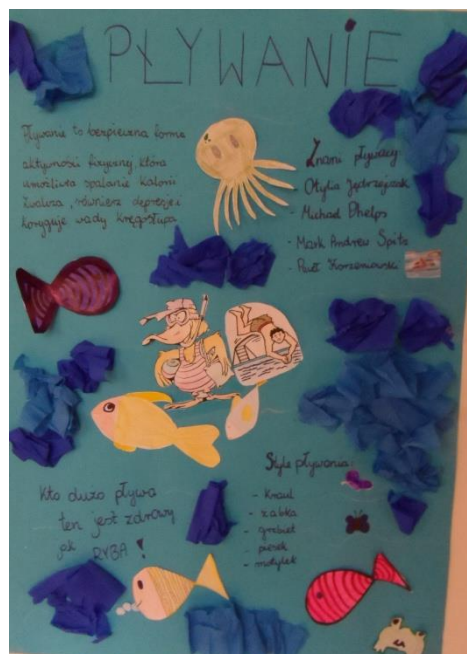 PŁYWANIE
Pływanie to bezpieczna forma
aktywności fizycznej, która
umożliwia spalanie kalorii
Zwalcza również depresję i
koryguje wady kręgosłupa
Znani pływacy:
- Otylia Jędrzejczak
- Michael Phelps
- Mark Andrew Spitz
- Paweł Korzeniowski
Style pływania:
- Kraul
- żabka
- grzbiet
- piesek
- motylek
Kto dużo pływa
ten jest zdrowy
jak RYBA!